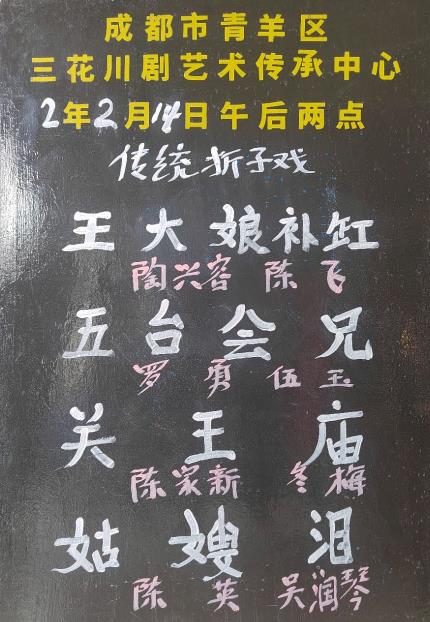 成都市青羊区
三花川剧艺术传承中心
2年2月14日午后两点
传统折子戏
王大娘补缸
陶兴容 陈飞
五台会兄
罗勇 伍玉
关王庙
陈家新 冬梅
姑嫂泪
陈英 吴润琴